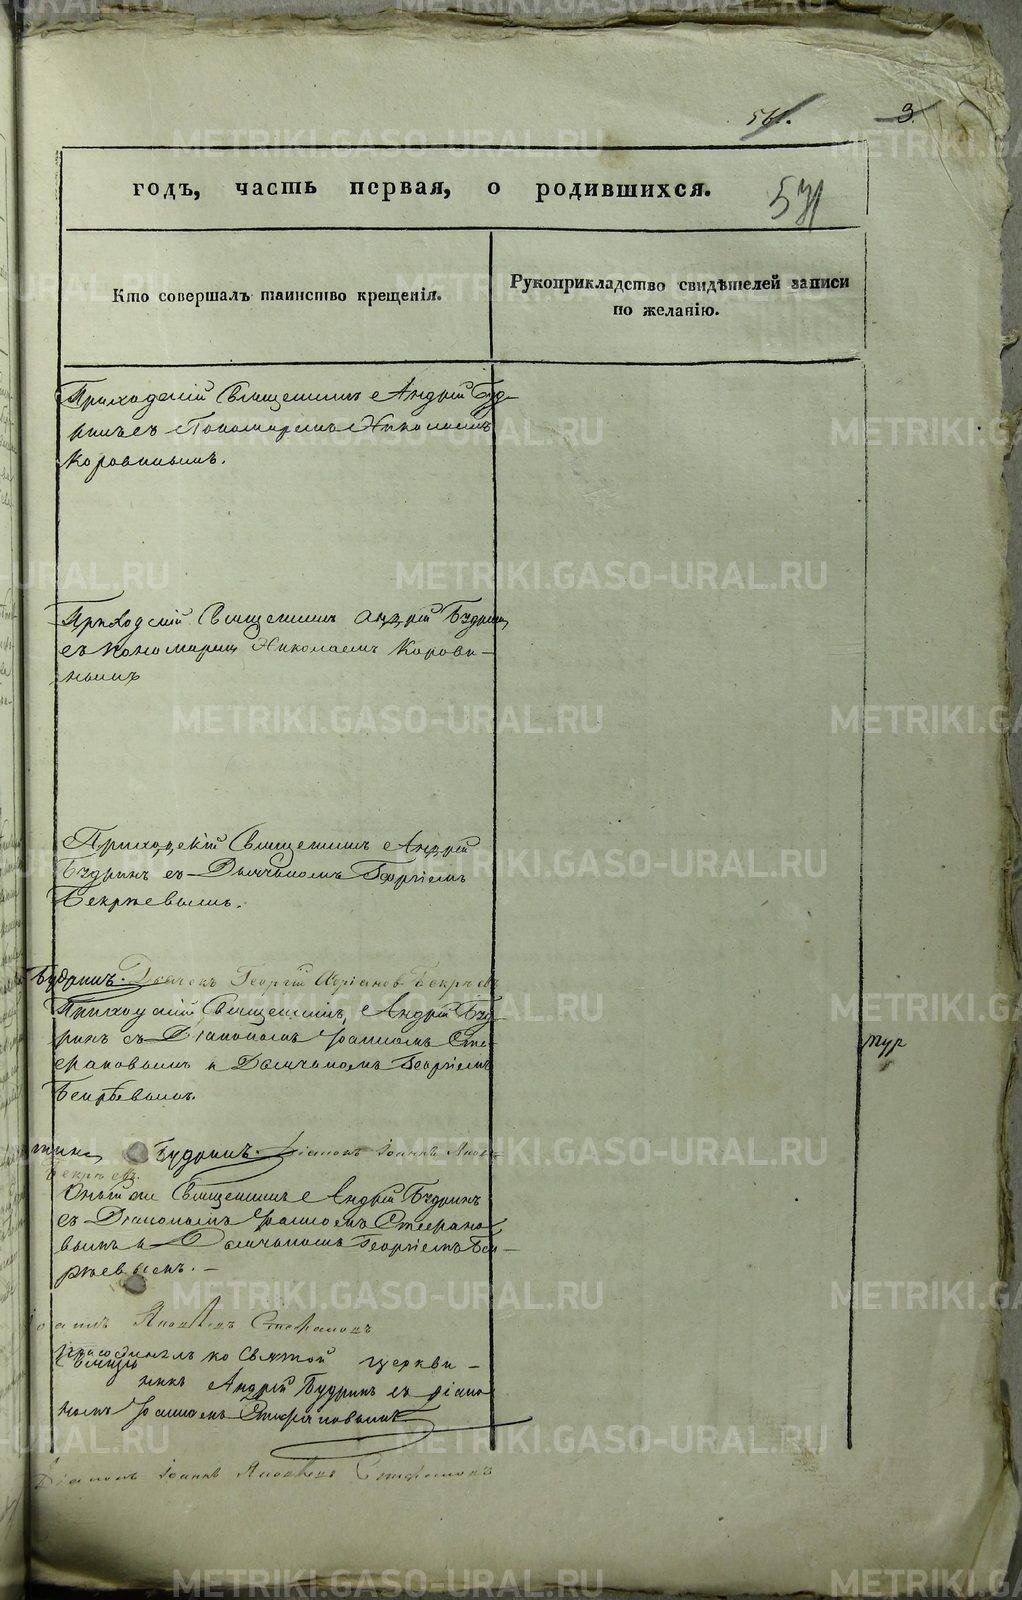 561.
3.
годъ, часть первая, о родившихся.
531
Кто совершалъ таинство крещенія.
Рукоприкладство свидѣтелей записи
по желанію.
Приходскій Священникъ Андрей Буд-
ринъ съ Пономаремъ Николаемъ
Коровинымъ.
Приходскій Священникъ Андрей Будринъ
съ пономаремъ Николаемъ Корови-
нымъ
Приходскій Священникъ Андрей
Будринъ съ Дьячкомъ Георгіемъ
Бекрѣевымъ.
Будринъ. Дьячекъ Георгій Бекрѣевъ
Приходскій Священникъ Андрей Буд-
ринъ съ Діакономъ Іоанномъ Сте-
фановымъ и Дьячкомъ Георгіемъ
Бекрѣевымъ.
Будринъ. Діаконъ Іоаннъ Яков-
Бекрѣевъ.
Оный же Священникъ Андрей Будринъ
съ Діакономъ Іоанномъ Стефано-
вымъ и Дьячкомъ Георгіемъ Бек-
рѣевымъ. —
Іоаннъ Яковлевъ Стефановъ
ко Святой церкви —
никъ Андрей Будринъ съ діако-
номъ Іоанномъ Стефановымъ
Діаконъ Іоаннъ Яковлевъ Стефановъ
METRIKI.GASO-URAL.RU